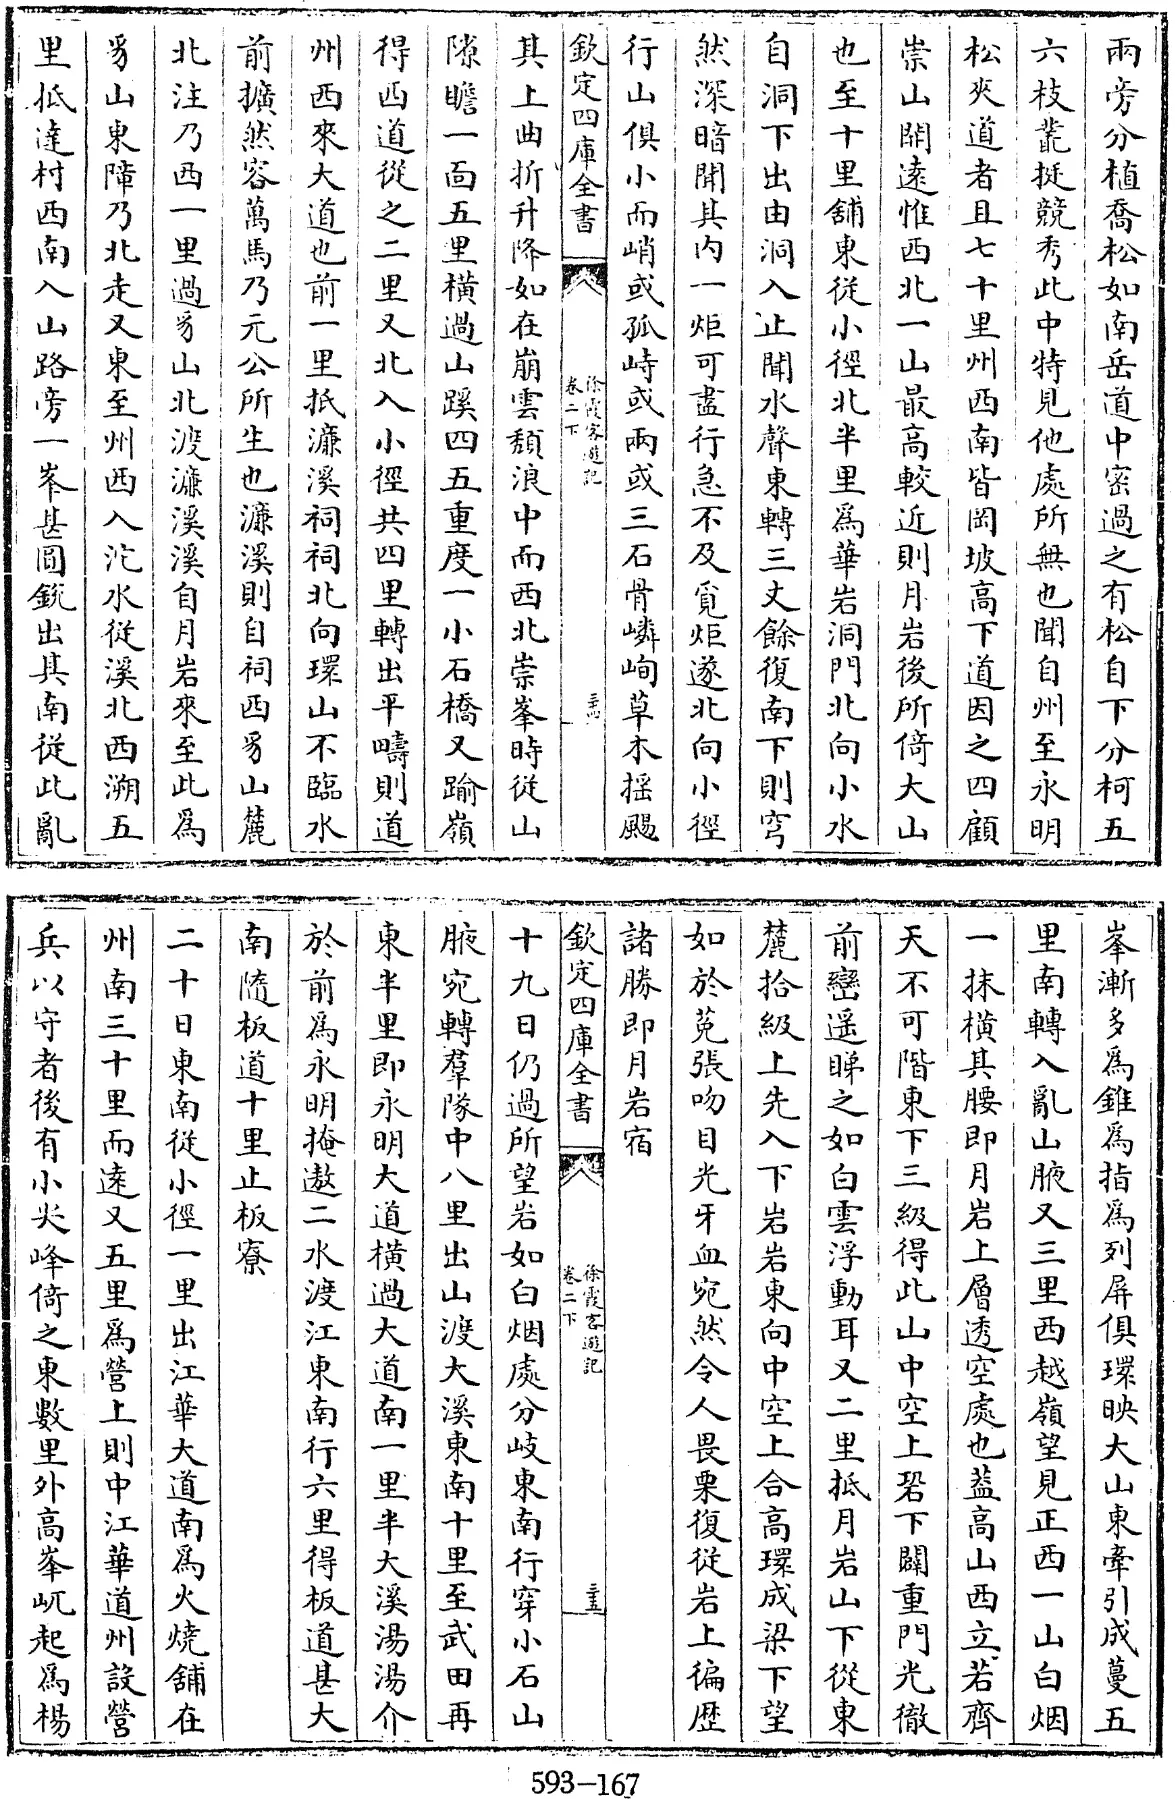 兩旁分植喬松如南岳道中密過之有松自下分柯五
六枝叢挺競秀此中特見他處所無也聞自州至永明
松夾道者且七十里州西南皆岡坡高下道因之四顧
崇山開遠惟西北一山最高較近則月岩後所倚大山
也至十里舖東從小徑北半里為華岩洞門北向小水
自洞下出由洞入止聞水聲東轉三丈餘復南下則穹
然深暗聞其内一炬可盡行急不及覓炬遂北向小徑
行山俱小而峭或孤峙或兩或三石骨嶙峋草木揺颺
欽定四庫全書
徐霞客遊記
卷二下
其上曲折升降如在崩雲頽浪中而西北崇峯時從山
隙瞻一面五里横過山蹊四五重度一小石橋又踰嶺
得西道從之二里又北入小徑共四里轉出平疇則道
州西來大道也前一里抵濂溪祠祠北向環山不臨水
前擴然容萬馬乃元公所生也濂溪則自祠西豸山麓
北注乃西一里過豸山北渡濂溪溪自月岩來至此為
豸山東障乃北走又東至州西入沱水從溪北西溯五
里抵達村西南入山路旁一峯甚圓銳出其南從此亂
峯漸多為錐為指為列屏俱環映大山東牽引成蔓五
里南轉入亂山腋又三里西越嶺望見正西一山白烟
一抹横其腰即月岩上層透空處也葢高山西立若齊
天不可階東下三級得此山中空上砻下闢重門光徹
前巒遥睇之如白雲浮動耳又二里抵月岩山下從東
麓拾級上先入下岩岩東向中空上合高環成梁下望
如於菟張吻目光牙血宛然令人畏栗復從岩上徧歴
諸勝即月岩宿
欽定四庫全書
徐霞客遊記
卷二下
十九日仍過所望岩如白烟處分岐東南行穿小石山
腋宛轉羣隊中八里出山渡大溪東南十里至武田再
東半里即永明大道横過大道南一里半大溪湯湯介
於前為永明掩遨二水渡江東南行六里得板道甚大
南隨板道十里止板寮
二十日東南從小徑一里出江華大道南為火燒舖在
州南三十里而遠又五里為營上則中江華道州設營
兵以守者後有小尖峰倚之東數里外高峯屼起為楊
593-167